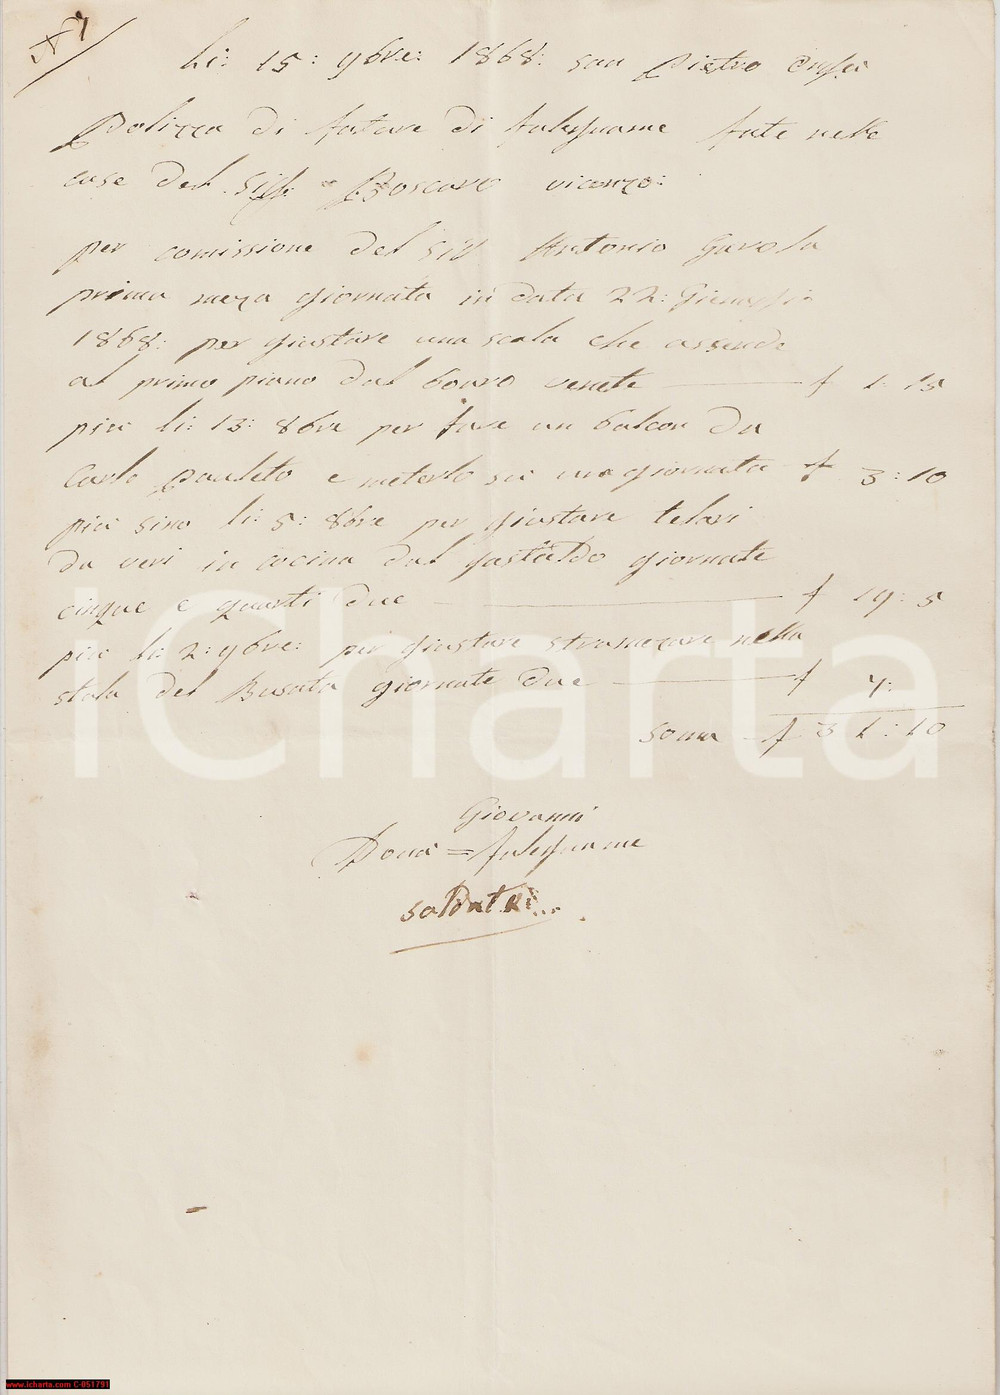 N 1
Li: 15: 9bre: 1868: san Pietro
Polizza di fature di falegname fate nelle
case del Sigr = Boscaro vicenzo:
per comissione del Sigr Antonio Garola
prima meza giornata in data 22:
1868: per giustare una scala che assende
al primo piano dal boaro venete f 1: 15
più li: 13: 8bre per fare un balcon da
Carlo Pauleto e meterlo su una giornata f 3: 10
più sino li: 5: 8bre per giustare telari
da veri in cocina dal gastaldo giornate
cinque e quarti due f 19: 5
più li: 2: 9bre: per giustare stramezare nella
stala del Busata giornate due f 7:
soma f 31: 10
Giovanni
Dona = falegname
saldatti...
iCharta
www.icharta.com C-051791